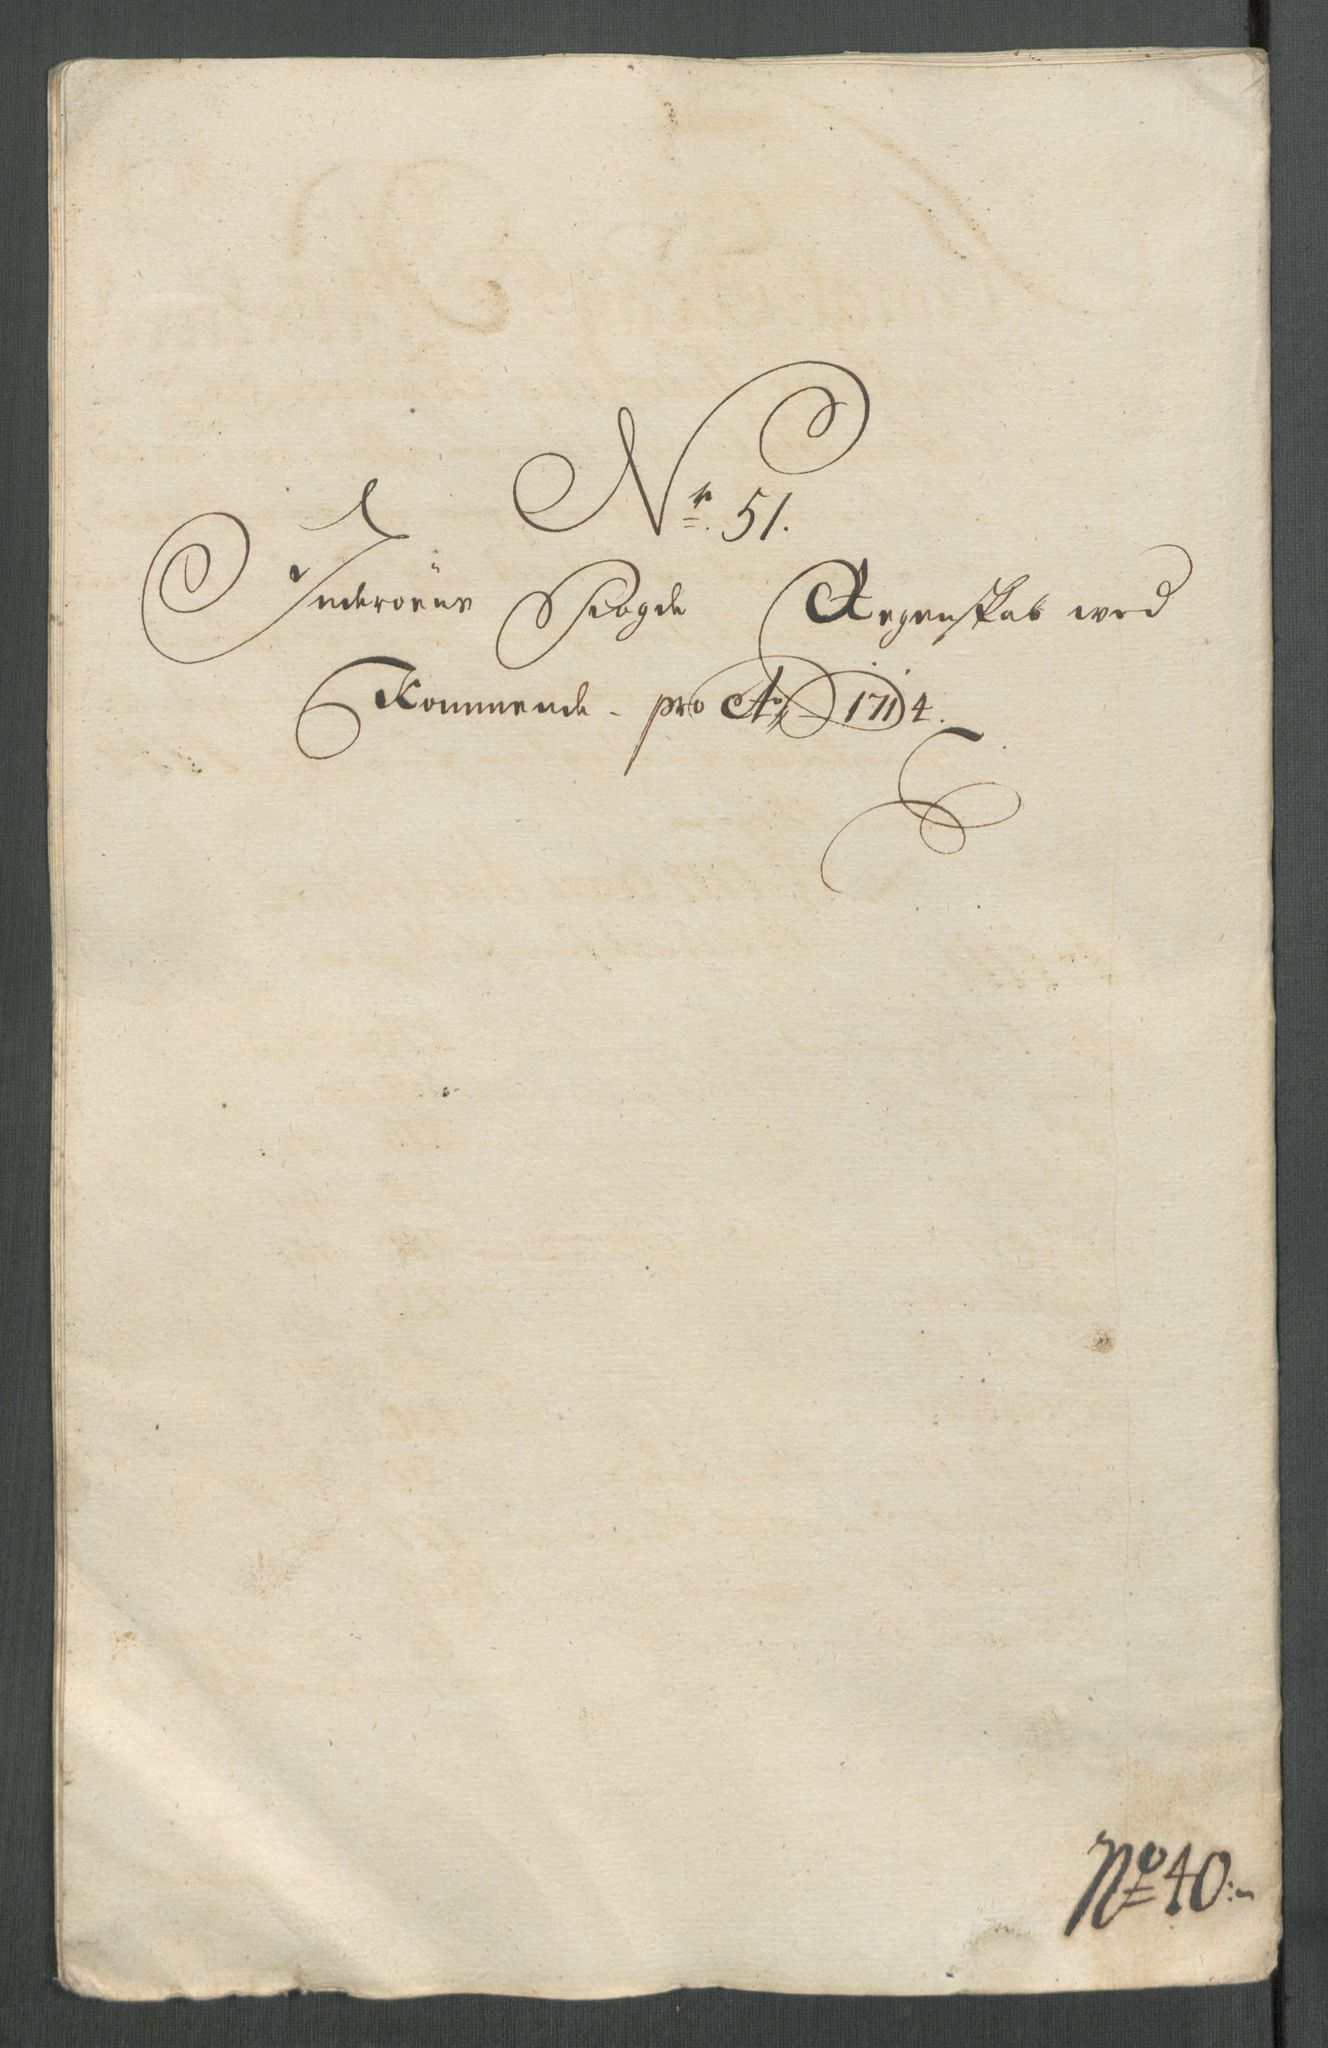 Nr. 51.
Inderøens Fogde Regenskab wed
Kommende - pro Ao 1714.
No 40:-